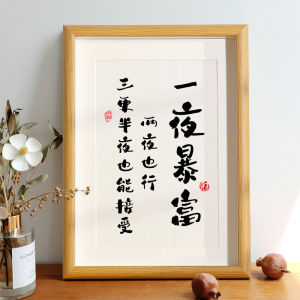 一夜暴富
两夜也行
三更半夜也能接受
FLOWER